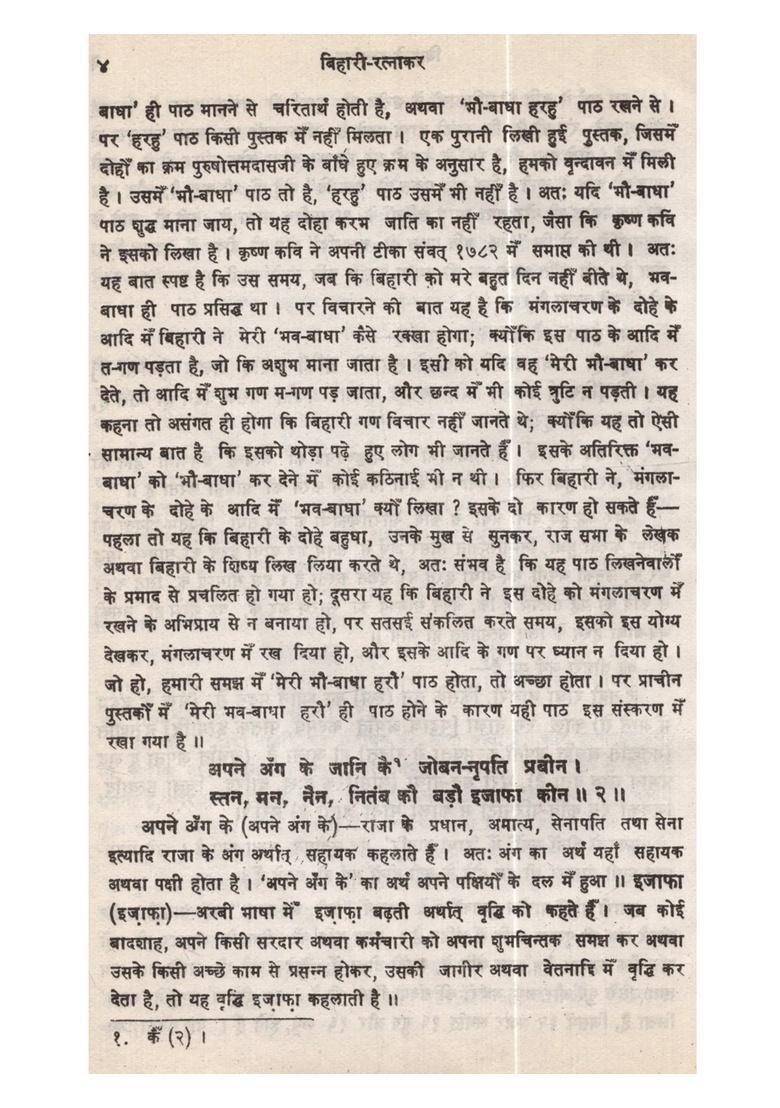 ४
बिहारी-रत्नाकर
बाधा’ ही पाठ मानने से चरितार्थ होती है, अथवा ‘भौ-बाधा हरहु’ पाठ रखने से ।
पर ‘हरहु’ पाठ किसी पुस्तक मेँ नहीँ मिलता । एक पुरानी लिखी हुई पुस्तक, जिसमेँ
दोहोँ का क्रम पुरुषोत्तमदासजी के बाँधे हुए क्रम के अनुसार है, हमको वृन्दावन मेँ मिली
है । उसमेँ ‘भौ-बाधा’ पाठ तो है, ‘हरहु’ पाठ उसमेँ भी नहीँ है । अतः यदि ‘भौ-बाधा’
पाठ शुद्ध माना जाय, तो यह दोहा करभ जाति का नहीँ रहता, जैसा कि कृष्ण कवि
ने इसको लिखा है । कृष्ण कवि ने अपनी टीका संवत् १७८२ मेँ समाप्त की थी । अतः
यह बात स्पष्ट है कि उस समय, जब कि बिहारी को मरे बहुत दिन नहीँ बीते थे, भव-
बाधा ही पाठ प्रसिद्ध था । पर विचारने की बात यह है कि मंगलाचरण के दोहे के
आदि मेँ बिहारी ने मेरी ‘भव-बाधा’ कैसे रक्खा होगा; क्योँकि इस पाठ के आदि मेँ
त-गण पड़ता है, जो कि अशुभ माना जाता है । इसी को यदि वह ‘मेरी भौ-बाधा’ कर
देते, तो आदि मेँ शुभ गण म-गण पड़ जाता, और छन्द मेँ भी कोई त्रुटि न पड़ती । यह
कहना तो असंगत ही होगा कि बिहारी गण विचार नहीँ जानते थे; क्योँकि यह तो ऐसी
सामान्य बात है कि इसको थोड़ा पढ़े हुए लोग भी जानते हैँ । इसके अतिरिक्त ‘भव-
बाधा’ को ‘भौ-बाधा’ कर देने मेँ कोई कठिनाई भी न थी । फिर बिहारी ने, मंगला-
चरण के दोहे के आदि मेँ ‘भव-बाधा’ क्योँ लिखा ? इसके दो कारण हो सकते हैँ—
पहला तो यह कि बिहारी के दोहे बहुधा, उनके मुख से सुनकर, राज सभा के लेखक
अथवा बिहारी के शिष्य लिख लिया करते थे, अतः संभव है कि यह पाठ लिखनेवालोँ
के प्रमाद से प्रचलित हो गया हो; दूसरा यह कि बिहारी ने इस दोहे को मंगलाचरण मेँ
रखने के अभिप्राय से न बनाया हो, पर सतसई संकलित करते समय, इसको इस योग्य
देखकर, मंगलाचरण मेँ रख दिया हो, और इसके आदि के गण पर ध्यान न दिया हो ।
जो हो, हमारी समझ मेँ ‘मेरी भौ-बाधा हरौ’ पाठ होता, तो अच्छा होता । पर प्राचीन
पुस्तकोँ मेँ ‘मेरी भव-बाधा हरौ’ ही पाठ होने के कारण यही पाठ इस संस्करण मेँ
रखा गया है ॥
अपने अँग के जानि कै१ जोबन-नृपति प्रबीन ।
स्तन, मन, नैन, नितंब कौ बड़ौ इजाफा कीन ॥ २ ॥
अपने अँग के (अपने अंग के)—राजा के प्रधान, अमात्य, सेनापति तथा सेना
इत्यादि राजा के अंग अर्थात् सहायक कहलाते हैँ । अतः अंग का अर्थ यहाँ सहायक
अथवा पक्षी होता है । ‘अपने अँग के’ का अर्थ अपने पक्षियोँ के दल मेँ हुआ ॥ इजाफा
(इज़ाफ़ा)—अरबी भाषा मेँ इज़ाफ़ा बढ़ती अर्थात् वृद्धि को कहते हैँ । जब कोई
बादशाह, अपने किसी सरदार अथवा कर्मचारी को अपना शुभचिन्तक समझ कर अथवा
उसके किसी अच्छे काम से प्रसन्न होकर, उसकी जागीर अथवा वेतनादि मेँ वृद्धि कर
देता है, तो यह वृद्धि इज़ाफ़ा कहलाती है ॥
१. कैँ (२) ।